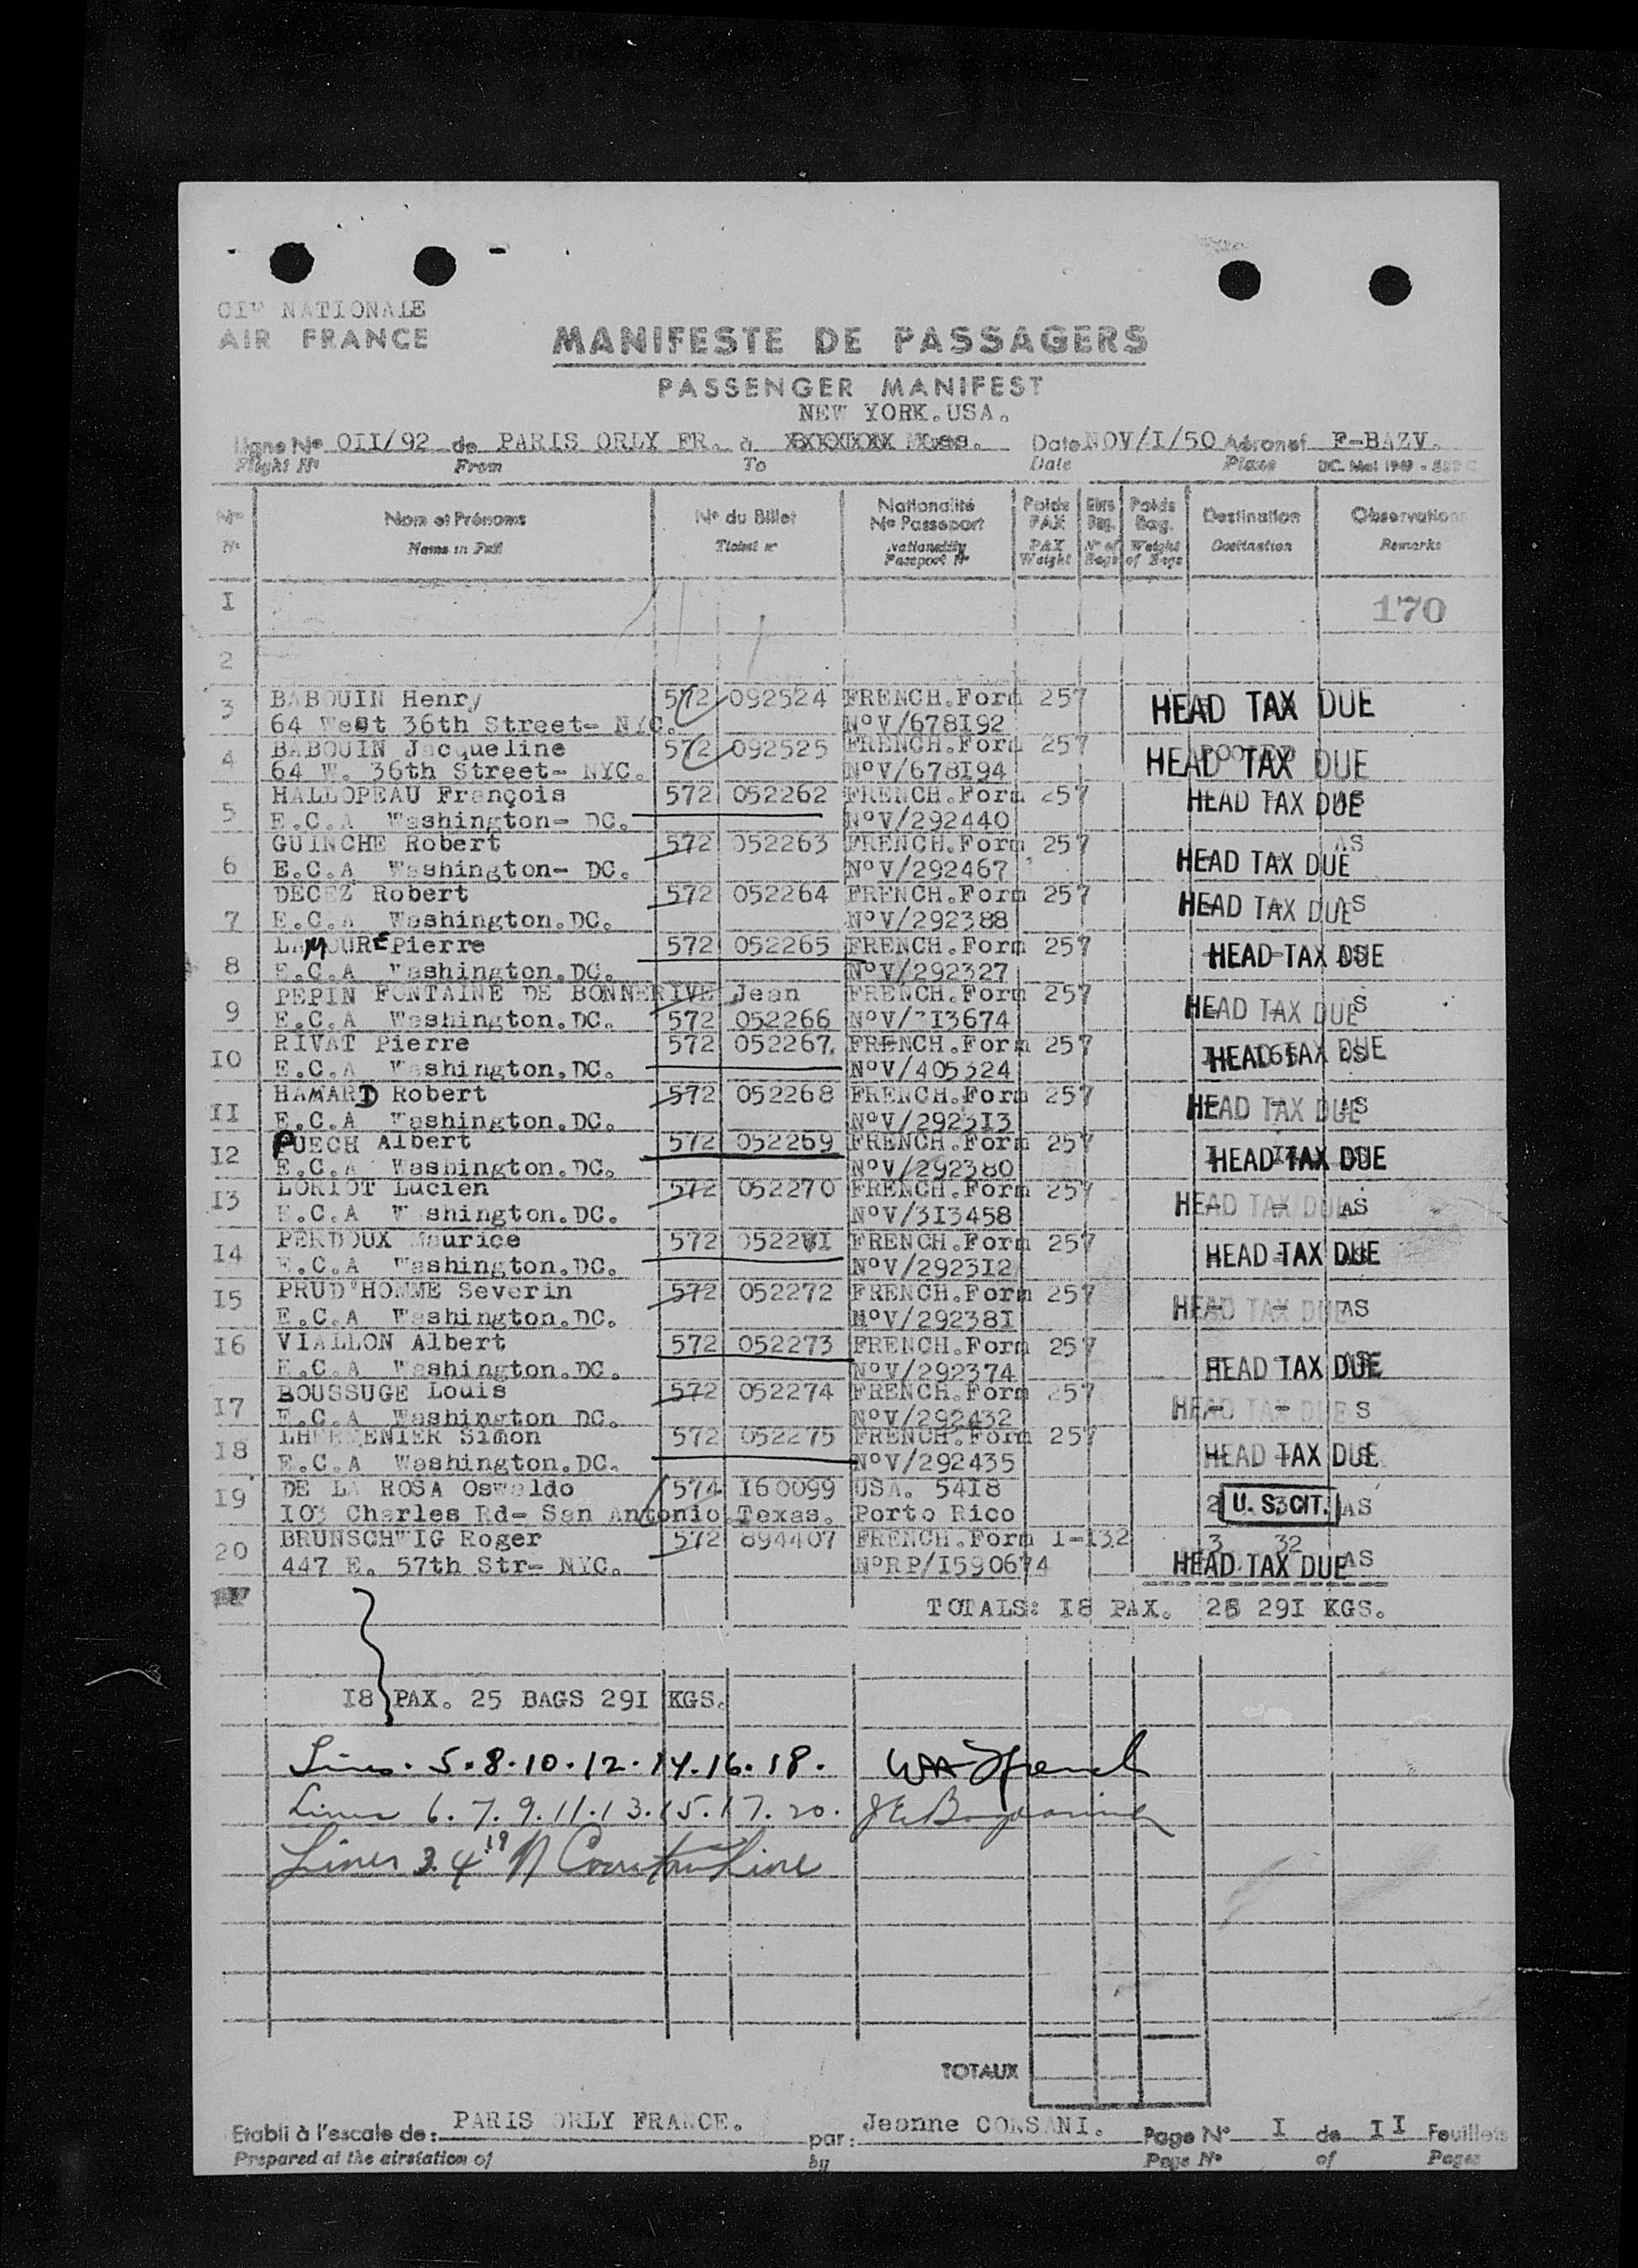 CIE NATIONALE
AIR FRANCE
MANIFESTE DE PASSAGERS
PASSENGER MANIFEST
NEW YORK.USA.
Ligne No 0II/92 de PARIS ORLY FR. à XXXXXXX Mass. Date NOV/I/50 Aéronef F-BAZV.
Flight No From To Date Plane
No Nom et Prénoms No du Billet Nationalité No Passeport Poids PAX Bag. Poids Bag. Destination Observations
N. Name in Full Ticket no Nationality Passport No PAX Weight No of Bags Weight of Bags Destination Remarks
I 170
2
3 BABOUIN Henry 572 092524 FRENCH.Form 257 HEAD TAX DUE
64 West 36th Street- NYC. NoV/678I92
4 BABOUIN Jacqueline 572 092525 FRENCH.Form 257 HEAD TAX DUE
64 W. 36th Street- NYC. NoV/678I94
5 HALLOPEAU François 572 052262 FRENCH.Form 257 HEAD TAX DUE
E.C.A Washington- DC. NoV/292440
6 GUINCHE Robert 572 052263 FRENCH.Form 257 AS HEAD TAX DUE
E.C.A Washington- DC. NoV/292467
7 DECEZ Robert 572 052264 FRENCH.Form 257 HEAD TAX DUE AS
E.C.A Washington.DC. NoV/292388
8 LAMOURE Pierre 572 052265 FRENCH.Form 257 HEAD TAX DUE
E.C.A Washington.DC. NoV/292327
9 PEPIN FONTAINE DE BONNERIVE Jean FRENCH.Form 257 HEAD TAX DUE
E.C.A Washington.DC. 572 052266 NoV/3I3674
I0 RIVAT Pierre 572 052267 FRENCH.Form 257 HEAD TAX DUE
E.C.A Washington.DC. NoV/405324
II HAMARD Robert 572 052268 FRENCH.Form 257 HEAD TAX DUE AS
E.C.A Washington.DC. NoV/2923I3
I2 PUECH Albert 572 052269 FRENCH.Form 257 HEAD TAX DUE
E.C.A Washington.DC. NoV/292380
I3 LORIOT Lucien 572 052270 FRENCH.Form 257 HEAD TAX DUE AS
E.C.A Washington.DC. NoV/3I3458
I4 PERDOUX Maurice 572 05227I FRENCH.Form 257 HEAD TAX DUE
E.C.A Washington.DC. NoV/2923I2
I5 PRUD'HOMME Severin 572 052272 FRENCH.Form 257 HEAD TAX DUE AS
E.C.A Washington.DC. NoV/29238I
I6 VIALLON Albert 572 052273 FRENCH.Form 257 HEAD TAX DUE
E.C.A Washington.DC. NoV/292374
I7 BOUSSUGE Louis 572 052274 FRENCH.Form 257 HEAD TAX DUE
E.C.A Washington DC. NoV/292432
I8 LHERMENIER Simon 572 052275 FRENCH.Form 257 HEAD TAX DUE
E.C.A Washington.DC. NoV/292435
I9 DE LA ROSA Oswaldo 574 I60099 USA. 54I8 U. S. CIT. AS
I03 Charles Rd- San Antonio.Texas. Porto Rico
20 BRUNSCHWIG Roger 572 894407 FRENCH.Form I-I32 3 32
447 E. 57th Str- NYC. NoRP/I590674 HEAD TAX DUE AS
TOTALS: I8 PAX. 25 29I KGS.
I8 PAX. 25 BAGS 29I KGS.
Lines. 5.8.10.12.14.16.18.
Lines 6.7.9.11.13.15.17.20.
Lines 3.4.19 N Constantine
TOTAUX
Etabli à l'escale de: PARIS ORLY FRANCE. par: Jeanne CORSANI. Page No I de II Feuillets
Prepared at the airstation of by Page No of Pages